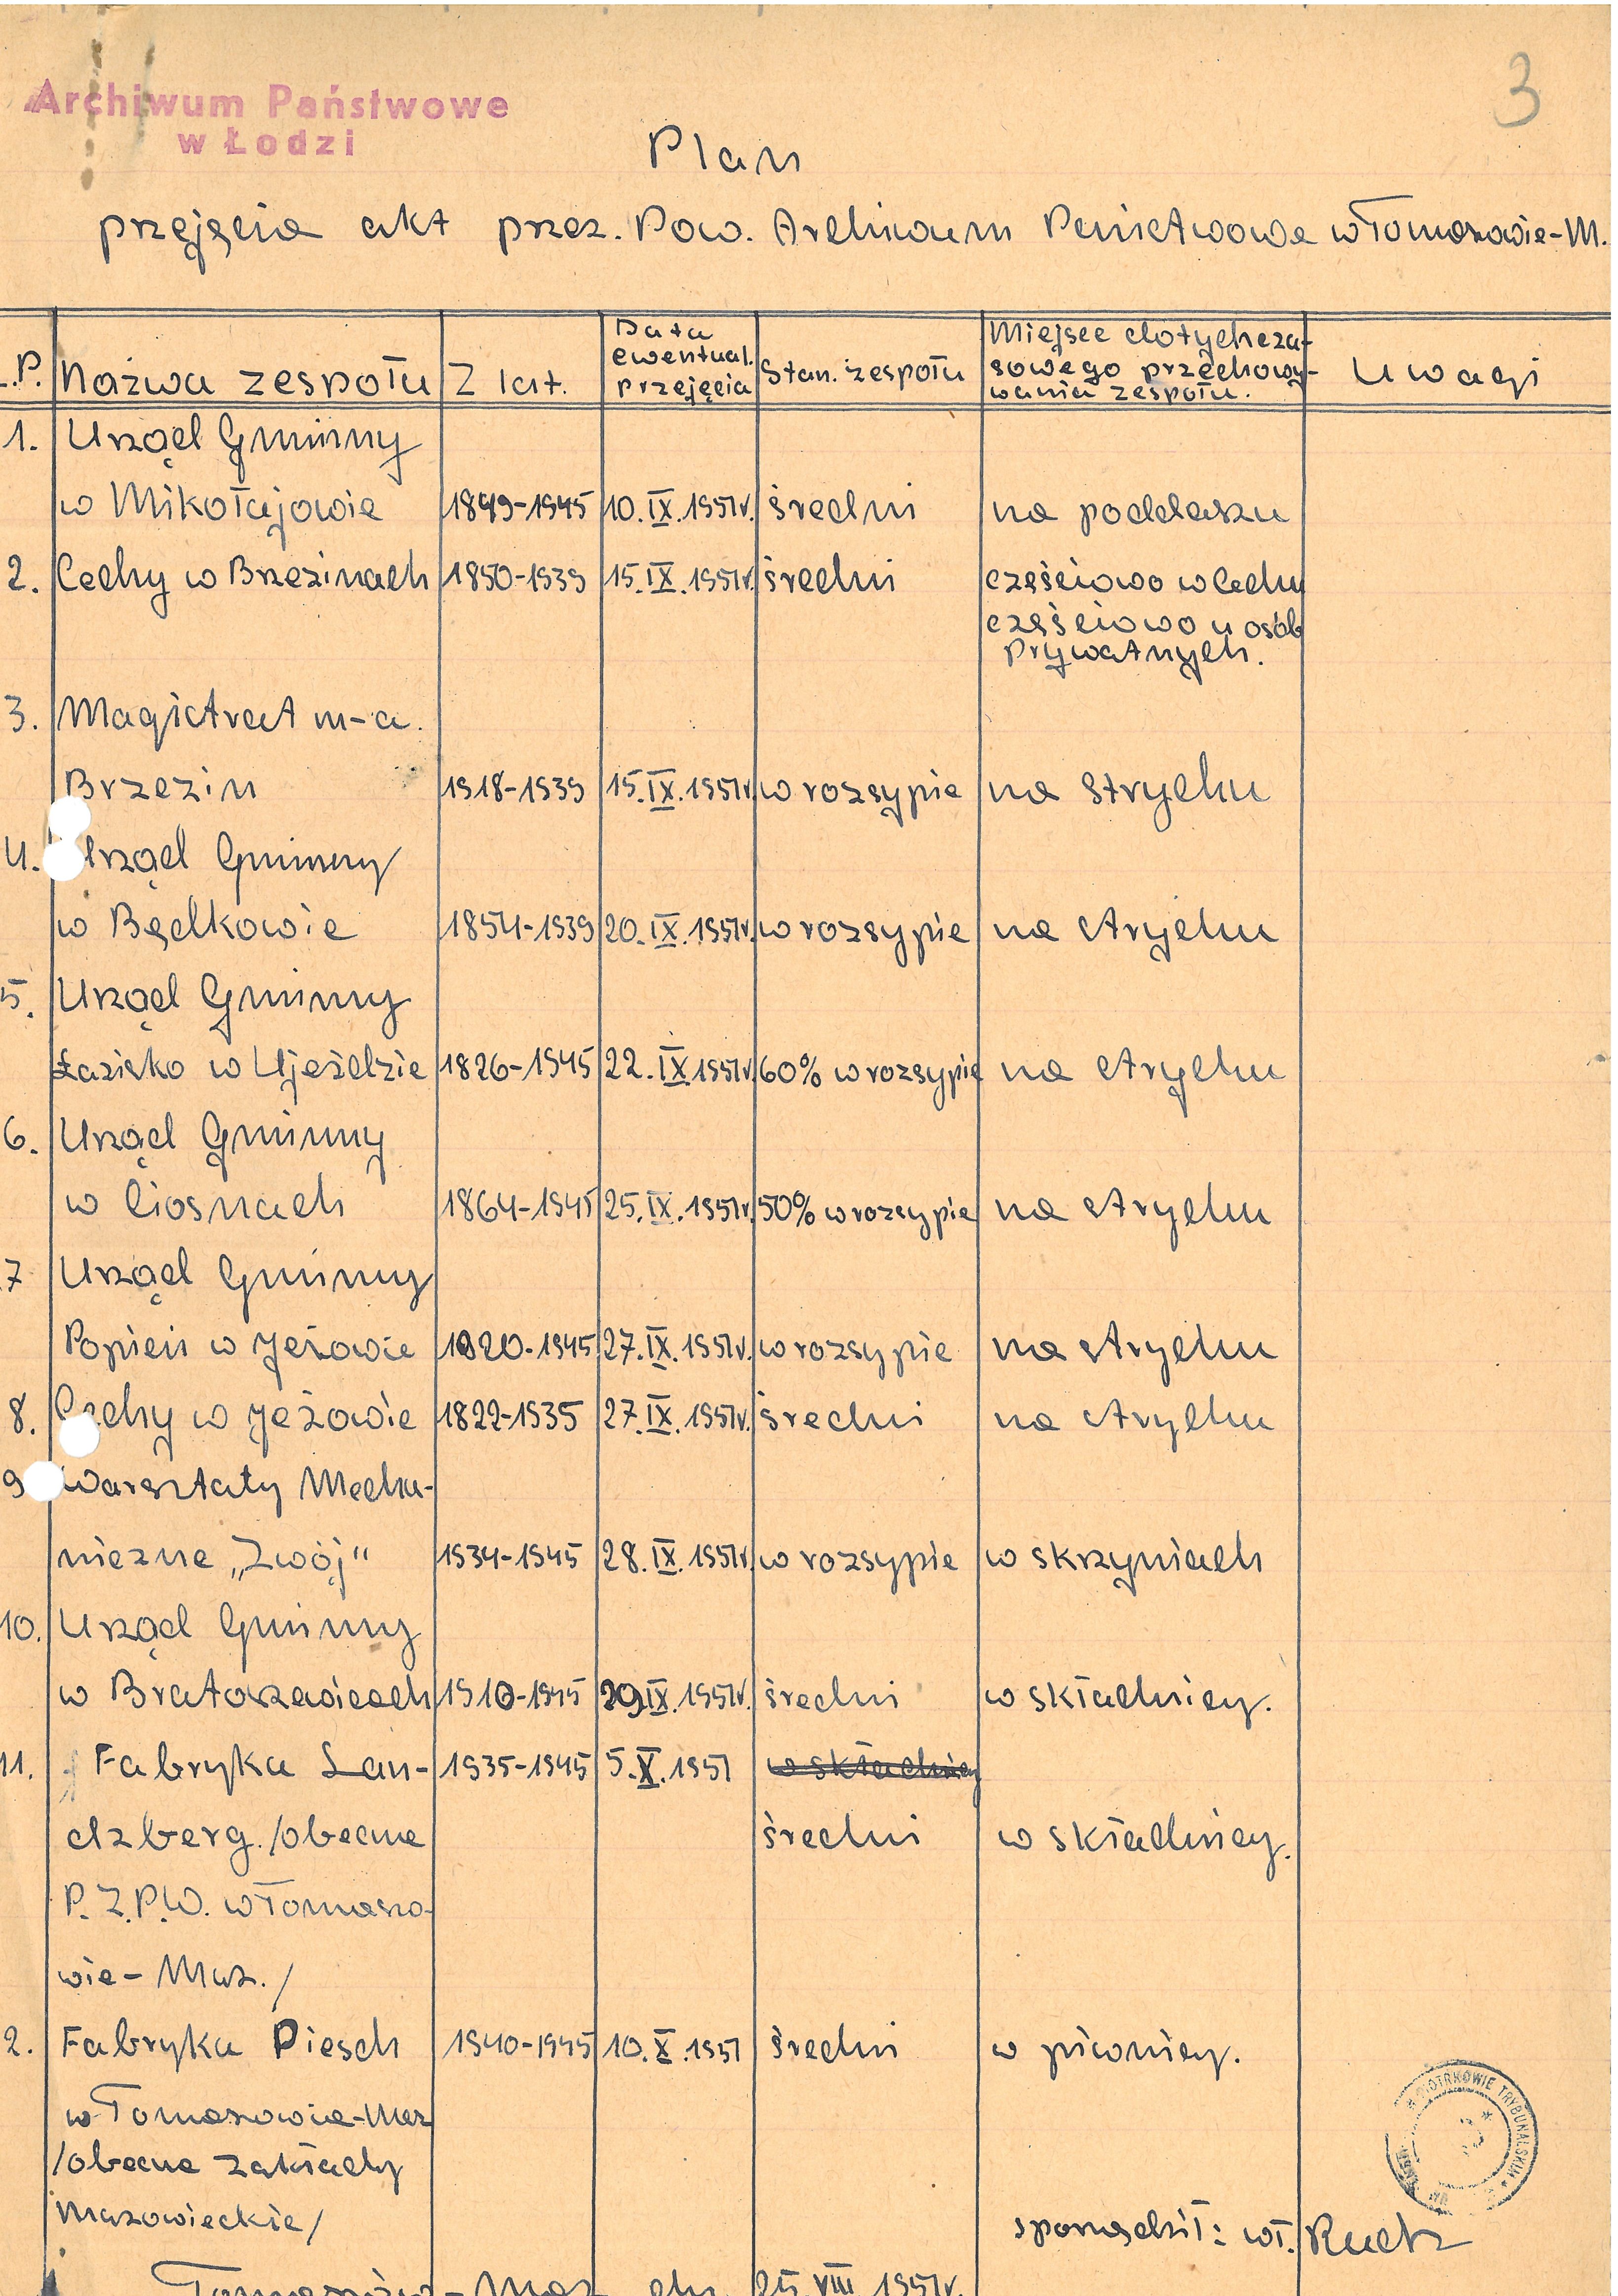 3
Archiwum Państwowe
w Łodzi
Plan
przejęcia akt przez. Pow. Archiwum Państwowe w Tomaszowie-M.
L.P. Nazwa zespołu Z lat. Data ewentual. przejęcia Stan. zespołu Miejsce dotychcza-sowego przechowy-wania zespołu. Uwagi
1. Urząd Gminny
w Mikołajowie 1849-1945 10.IX.1951r. średni na poddaszu
2. Cechy w Brzezinach 1850-1939 15.IX.1951r. średni częściowo w Cechu
częściowo u osób
prywatnych.
3. Magistrat m-a.
Brzezin 1918-1939 15.IX.1951r. w rozsypie na strychu
4. Urząd Gminny
w Będkowie 1854-1939 20.IX.1951r. w rozsypie na strychu
5. Urząd Gminny
Łazisko w Ujeździe 1826-1945 22.IX.1951r. 60% w rozsypie na strychu
6. Urząd Gminny
w Ciosnach 1864-1945 25.IX.1951r. 50% w rozsypie na strychu
7 Urząd Gminny
Popień w Jeżowie 1820-1945 27.IX.1951r. w rozsypie na strychu
8. Cechy w Jeżowie 1822-1935 27.IX.1951r. średni na strychu
9 Warsztaty Mecha-
niczne „Zwój" 1934-1945 28.IX.1951r. w rozsypie w skrzyniach
10. Urząd Gminny
w Bratoszewicach 1910-1945 29.IX.1951r. średni w składnicy.
11. Fabryka Lan- 1935-1945 5.X.1951 w składnicy
dzberg. /obecne średni w składnicy.
P.Z.P.W. w Tomaszo-
wie-Maz./
2. Fabryka Piesch 1940-1945 10.X.1951 średni w piwnicy.
w Tomaszowie-Maz
/obecne zakłady
Mazowieckie/
PIOTRKOWIE TRYBUNALSKIM
sporządził: wł. Ruch
Tomaszów-Maz. dn. 25.VIII.1951r.